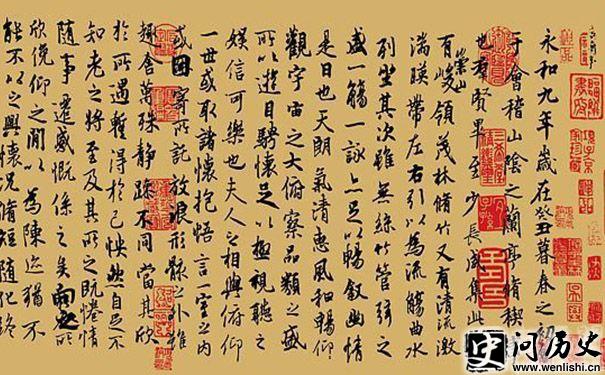 永和九年歲在癸丑暮春之初
于會稽山陰之蘭亭脩稧
也羣賢畢至少長咸集此
有崇山峻領茂林脩竹又有清流激
湍暎帶左右引以為流觴曲水
列坐其次雖無絲竹管弦之
盛一觴一詠亦足以暢叙幽情
是日也天朗氣清惠風和暢仰
觀宇宙之大俯察品類之盛
所以遊目騁懷足以極視聽之
娛信可樂也夫人之相與俯仰
一世或取諸懷抱悟言一室之內
或因寄所託放浪形骸之外雖
趣舍萬殊靜躁不同當其欣
於所遇蹔得於己怏然自足不
知老之將至及其所之既惓情
隨事遷感慨係之矣向之所
欣俛仰之閒以為陳迹猶不
能不以之興懷況脩短隨化終
史问历史
www.wenlishi.cn